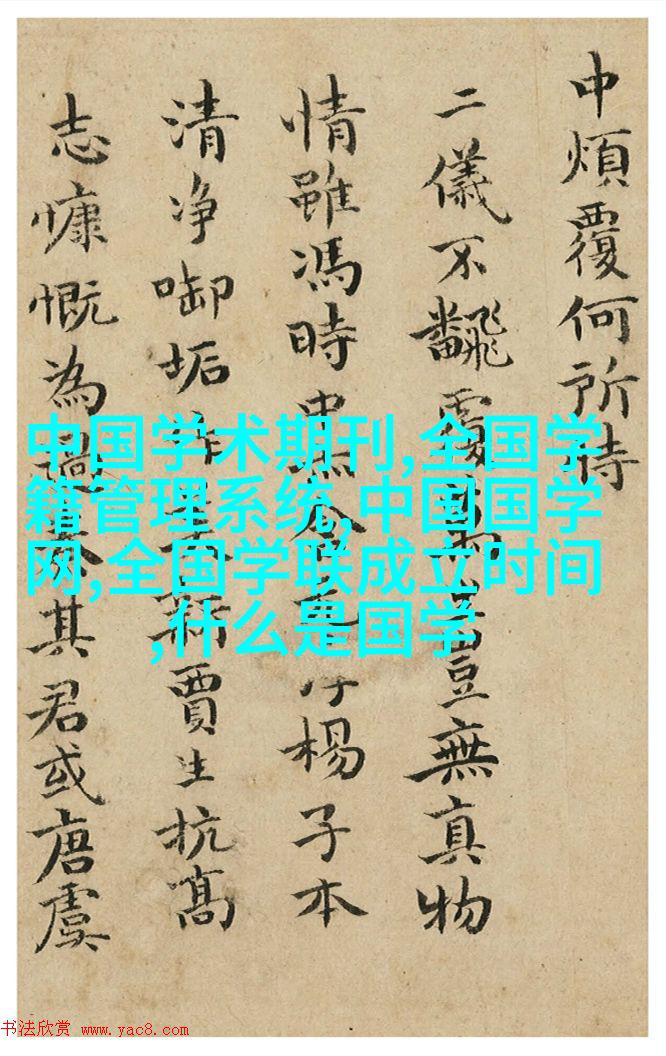 中煩覆何所待
二儀不飜覆
豈無真物
情雖馮時
楊子本
清净啣垢
賈生抗高
志慷慨為
其君或唐虞
中国学术期刊,全国学
籍管理系统,中国国学
网,全国学联成立时间
,什么是国学
书法欣赏 www.yac8.com